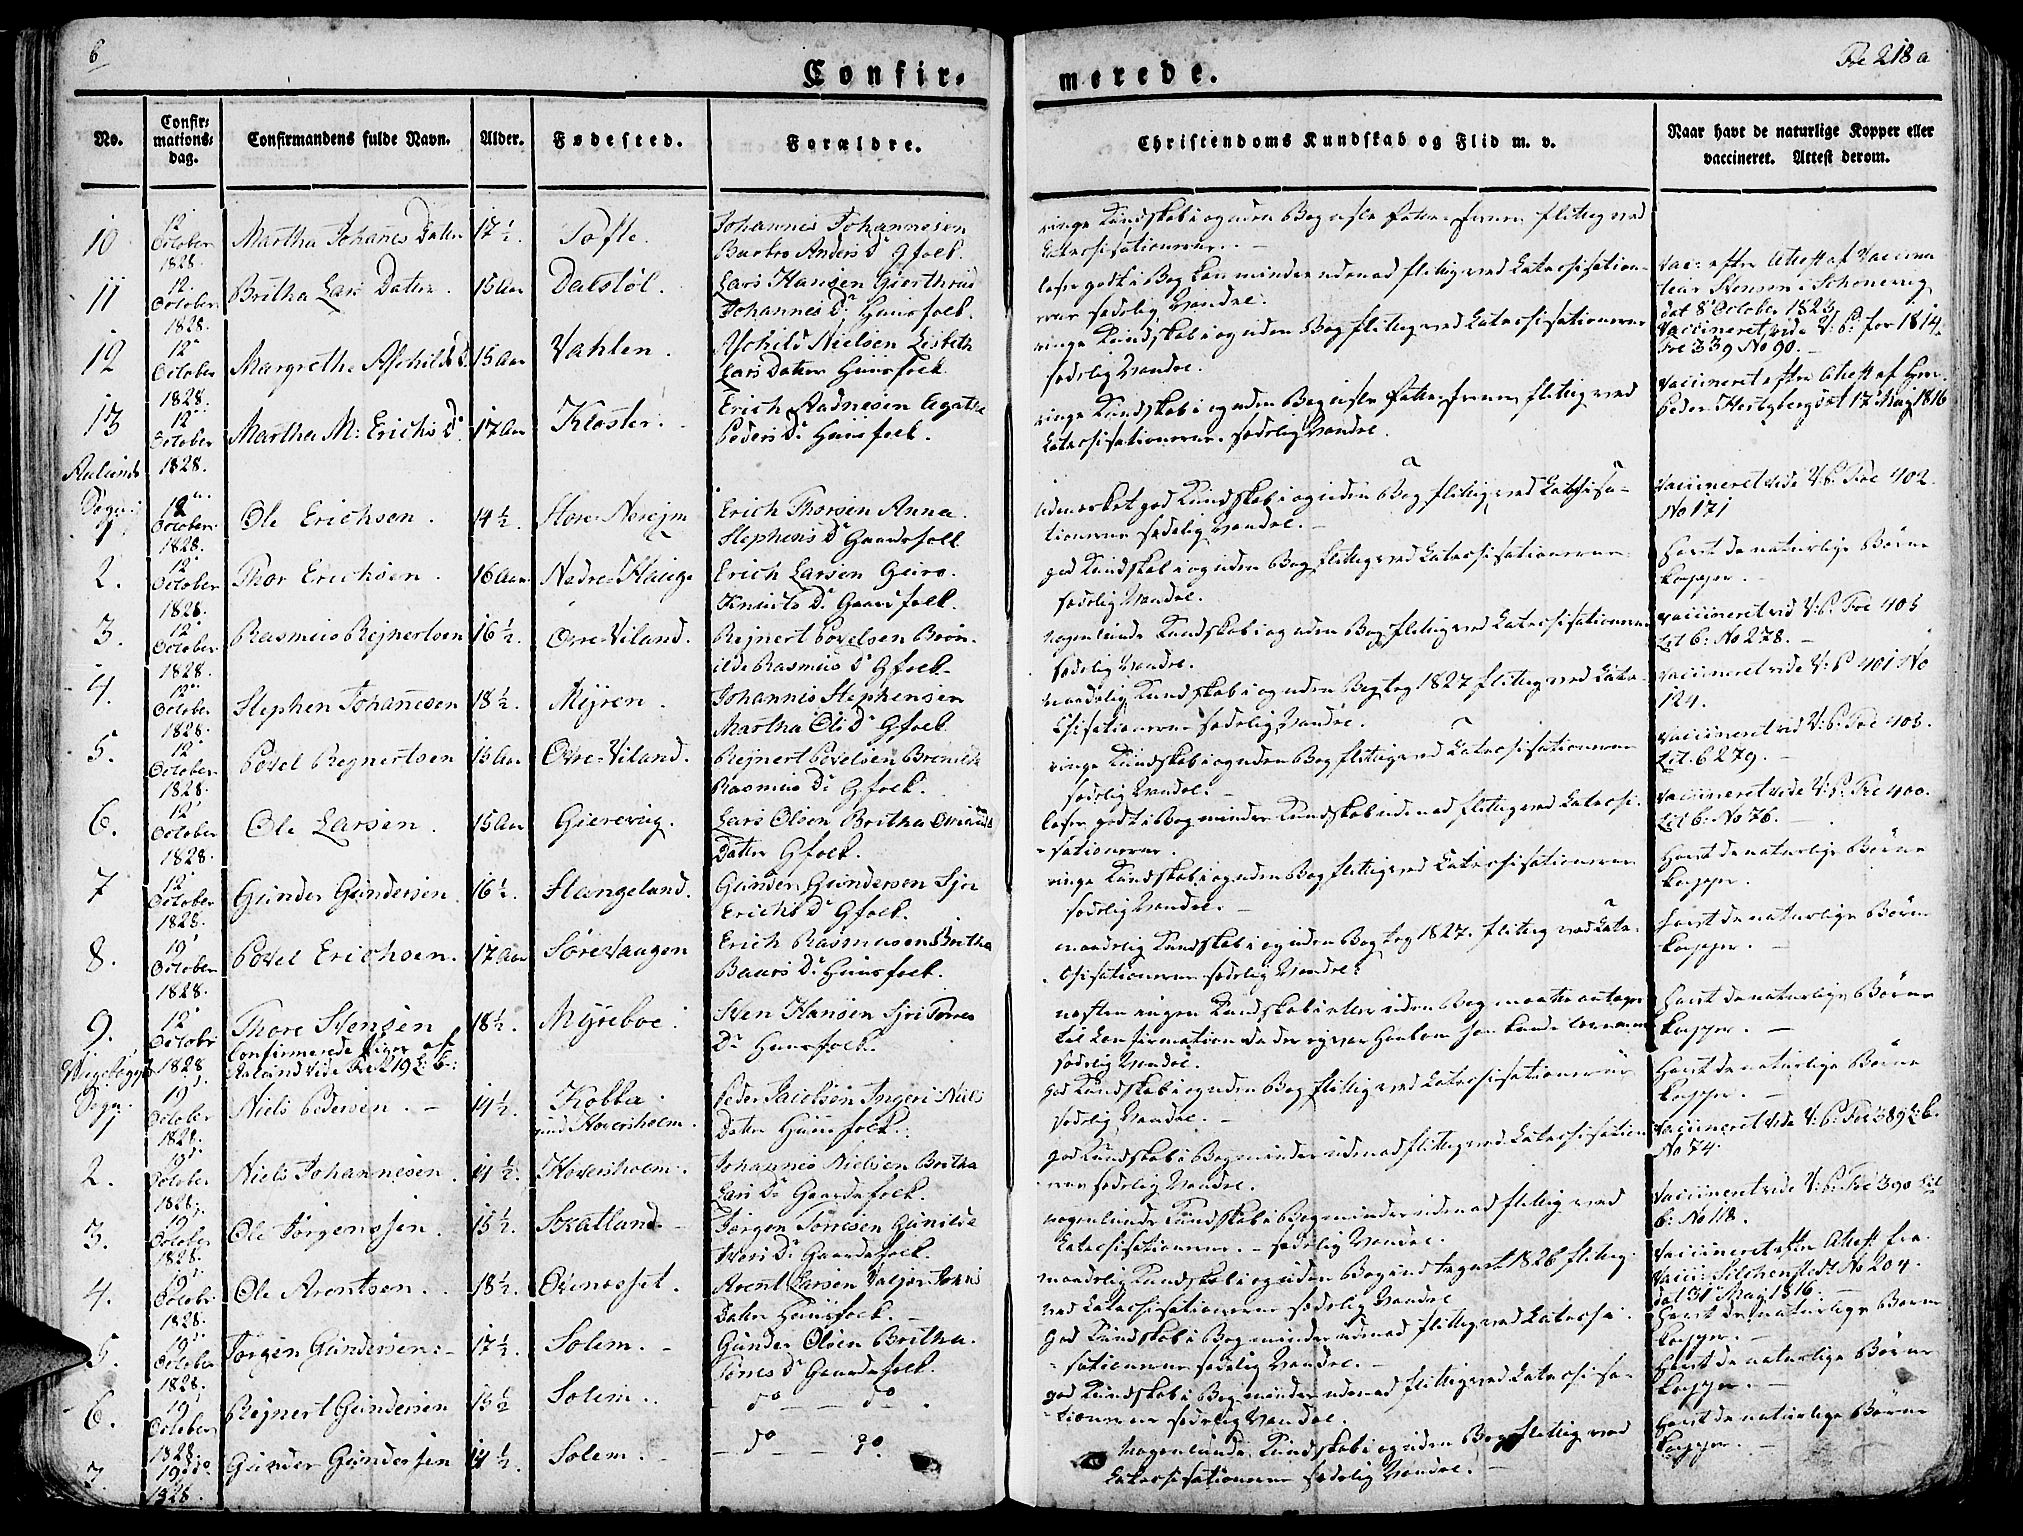 6
Confir-
merede.
Fol 218 a
No.
Confir-
mations-
dag.
Confirmandens fulde Navn.
Alder.
Fødested.
Forældre.
Christendoms Kundskab og Flid m. v.
Naar havt de naturlige Kopper eller
vaccineret. Attest derom.
10
12
October
1828.
Martha Johañes Dater
17½.
Tofte.
Johannes Johannesen
Barbro Anders Dr Gfolk.
ringe Kundskab i og uden Bog
flittig ved
Catechisationerne. –
11
12.
October
1828.
Britha Lars Dater.
15 Aar
Dalsløl.
Lars Hansen Gierthrud
Johannes Dr Huusfolk.
læser godt i Bog kan mindre udenad flittig ved Catechisation-
erne sædelig Vandel.
Vac: efter Attest af Vaccina
dat 8 October 1823
12
12
October
1828.
Margrethe Aschilds D.
15 Aar
Vahlen.
Aschild Nielsen Lisbeth
Lars Dater Huusfolk.
ringe Kundskab i og uden Bog flittig ved Catechisationerne
sædelig Vandel.
Vaccineret vide V: P: for 1814
Fol 339 No 90. –
13
12
October
1828.
Martha M: Erichs D.
17 Aar
Kloster.
Erich Aadnesen Agatha
Peders Dr Huusfolk.
ringe Kundskab i og uden Bog
flittig ved
Catechisationerne. sædelig Vandel.
Vaccineret efter Attest af Hr.
Peder Hertzberg dat 17 May 1816
Aalunds
Sogn:
1
12
October
1828.
Ole Erichsen.
14½.
Store Nerejm
Erich Thorsen Anna
Stephens Dr Gaardsfolk
udmærket god Kundskab i og uden Bog flittig ved Catechisa-
tionerne sædelig Vandel. –
Vaccineret vide V: P: Fol 402.
No 171
2.
12
October
1828.
Thor Erichsen.
16 Aar
Nedre Hauge
Erich Larsen Geiro.
Knuds Dr Gaardfolk.
god Kundskab i og uden Bog flittig ved Catechisationerne.
sædelig Vandel.
Havt de naturlige Børne
kopper. –
3.
12
October
1828.
Rasmus Rejnertsen
16½.
Ovre Viland.
Rejnert Povelsen Bron-
ilde Rasmus Dr Gfolk
nogenlunde Kundskab i og uden Bog flittig ved Catechisationerne
sædelig Vandel.
Vaccineret vid V: P: Fol 405
Lit b: No 278. –
4.
12
October
1828.
Stephen Johañesen
18½.
Myren.
Johannes Stephensen
Martha Ols Dr Gfolk
maadelig Kundskab i og uden Bog tog 1827 flittig ved Cate-
chisationerne sædelig Vandel.
Vaccineret vide V: P 401 No
124.
5.
12
October
1828.
Povel Rejnertsen
15 Aar
Ovre Viland.
Rejnert Povelsen Bronilde
Rasmus Dr Gfolk.
ringe Kundskab i og uden Bog flittig ved Catechisationerne
sædelig Vandel. –
Vaccineret vid V: P: Fol 405.
Lit. b 279. –
6.
12
October
1828.
Ole Larsen.
15 Aar
Giervig.
Lars Olsen Britha
Dater Gfolk.
læser godt i Bog mindre Kundskab udenad flittig ved Catechi-
sationerne.
Vaccineret vide V: P: Fol 400.
Lit b: No 76. –
7
12
October
1828.
Gunder Gundersen.
16½.
Stangeland.
Gunder Gundersen Siri
Erichs Dr Gfolk.
ringe Kundskab i og uden Bog flittig ved Catechisationerne
sædelig Vandel. –
Havt de naturlige Børne
kopper.
8.
19
October
1828.
Povel Erichsen.
17 Aar
Søre Vaagen
Erich Rasmussen Britha
Baars Dr Huusfolk.
maadelig Kundskab i og uden Bog tog 1827. flittig ved Cate-
chisationerne sædelig Vandel.
Havt de naturlige Børne
kopper. –
9.
12
Octobr
1828
Thore Svensen
18½.
Myreboe.
Sven Hansen Siri Torres
Dr Huusfolk.
næsten ingen Kundskab i eller uden Bog maatte antages
til Confirmation da
sædelig Vandel.
Havt de naturlige Børne
kopper. –
Confirmerede Piger af
Aaland vide Fol 219 L: b:
Sogn.
1
19
October
1828.
Niels Pedersen. –
14½.
Kobbe
und Hoversholm.
Peder Jacobsen Ingeri Niels
Dater Huusfolk.
god Kundskab i og uden Bog flittig ved Catechisationerne
sædelig Vandel. –
Havt de naturlige Børne
kopper. –
2.
19
October
1828.
Niels Johannesen.
14½.
Hoversholm.
Johannes Nielsen Britha
Lars Dr Gaardsfolk.
god Kundskab i Bog mindre udenad flittig ved Catechisation
erne sædelig Vandel.
Vaccineret vide V: P: Fol 389 L: b.
No 74.
3.
19
October
1828.
Ole Jørgenssen.
15½.
Skatland. –
Jørgen Tonnesen Gunilde
Ivers Dr Gaardsfolk.
nogenlunde Kundskab i Bog mindre udenad flittig ved
Catechisationerne. – sædelig Vandel.
Vaccineret vide V: P: Fol 390 Lit
b: No 118.
4.
19
Octobr
1828.
Ole Arentsen.
18½.
Ovenesset.
Arent Larsen Valgier Johns
Dater Huusfolk. –
maadelig Kundskab i og uden Bog und taget 1826 flittig
ved Catechisationerne sædelig Vandel
Vaccineret efter Attest fra
No 204.
dat 31 May 1816. –
5.
19
October
1828.
Jørgen Gundersen. –
17½.
Solem. –
Gunder Olsen Britha.
Tønes Dr Gaardsfolk.
god Kundskab i Bog mindre udenad flittig ved Catechi-
sationerne sædelig Vandel. –
Havt de naturlige Børne
kopper. –
6.
19
October
1828.
Rejnert Gundersen
15½
Solem.
do – – do.
god Kundskab i Bog mindre udenad flittig ved Catechisa-
tionerne sædelig Vandel.
Havt de naturlige Børne
kopper. –
7.
19
1828.
Gunder Gundersen
14½.
Solem. –
– do – – do.
Nogenlunde Kundskab i og uden Bog flittig ved
Catechisationerne sædelig Vandel. –
Havt de naturlige Børne
kopper. –